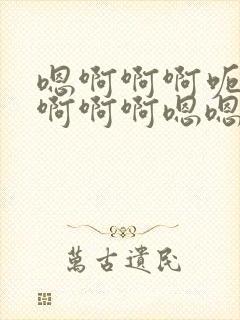 嗯啊啊啊呃
啊啊啊嗯嗯
萬古遺民